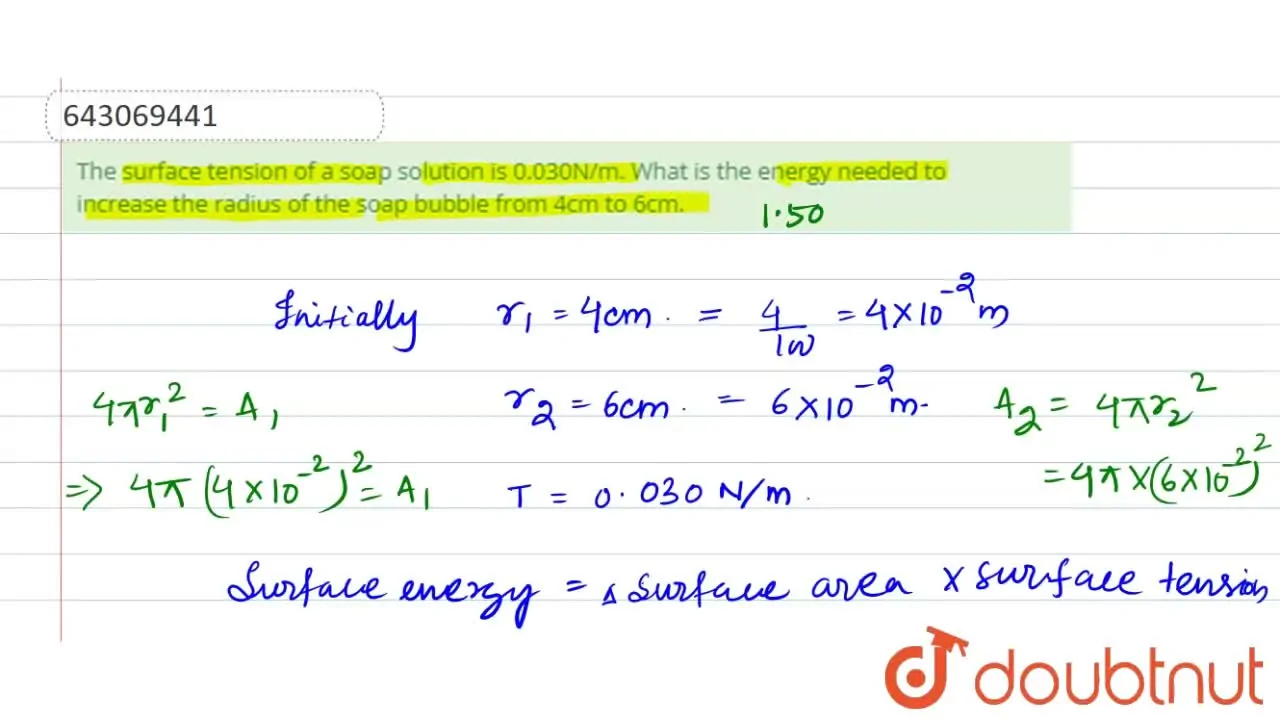 643069441
The surface tension of a soap solution is 0.030N/m. What is the energy needed to
increase the radius of the soap bubble from 4cm to 6cm.
1.50
Initially r₁ = 4cm. = 4/100 = 4×10⁻² m
4πr₁² = A₁ r₂ = 6cm. = 6×10⁻² m. A₂ = 4πr₂²
⇒ 4π(4×10⁻²)² = A₁ T = 0.030 N/m. = 4π×(6×10⁻²)²
Surface energy = Δ surface area × surface tension
doubtnut